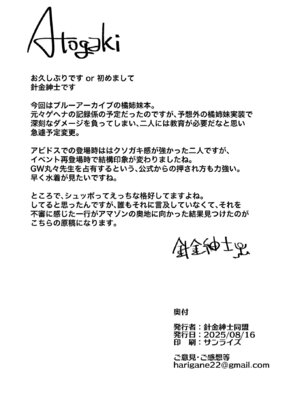 Atogaki
お久しぶりです or 初めまして
針金紳士です
今回はブルーアーカイブの橘姉妹本。
元々ゲヘナの記録係の予定だったのですが、予想外の橘姉妹実装で
深刻なダメージを負ってしまい、二人には教育が必要だなと思い
急遽予定変更。
アビドスでの登場時はクソガキ感が強かった二人ですが、
イベント再登場時で結構印象が変わりましたね。
GW丸々先生を占有するという、公式からの押され方も力強い。
早く水着が見たいですね。
ところで、シュッポってえっちな格好してますよね。
してると思ったんですが、誰もそれに言及していなくて、それを
不審に感じた一行がアマゾンの奥地に向かった結果見つけたのが
こちらの原稿になります。
針金紳士
奥付
発行者：針金紳士同盟
発行日：2025/08/16
印　刷：サンライズ
ご意見・ご感想等
harigane22@gmail.com